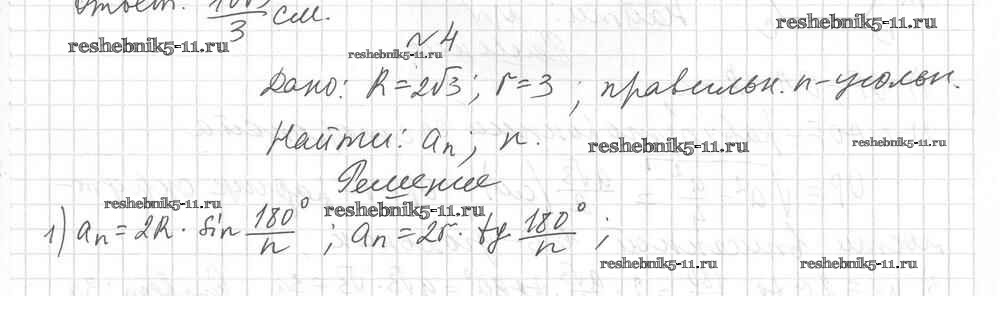 Ответ: 10√3/3 см.
reshebnik5-11.ru
reshebnik5-11.ru
№4
reshebnik5-11.ru
Дано: R=2√3; r=3; правильн. n-угольн.
Найти: aₙ; n.
reshebnik5-11.ru
reshebnik5-11.ru
Решение
reshebnik5-11.ru
reshebnik5-11.ru
1) aₙ=2R· sin 180°/n ; aₙ=2r· tg 180°/n ;
reshebnik5-11.ru
reshebnik5-11.ru